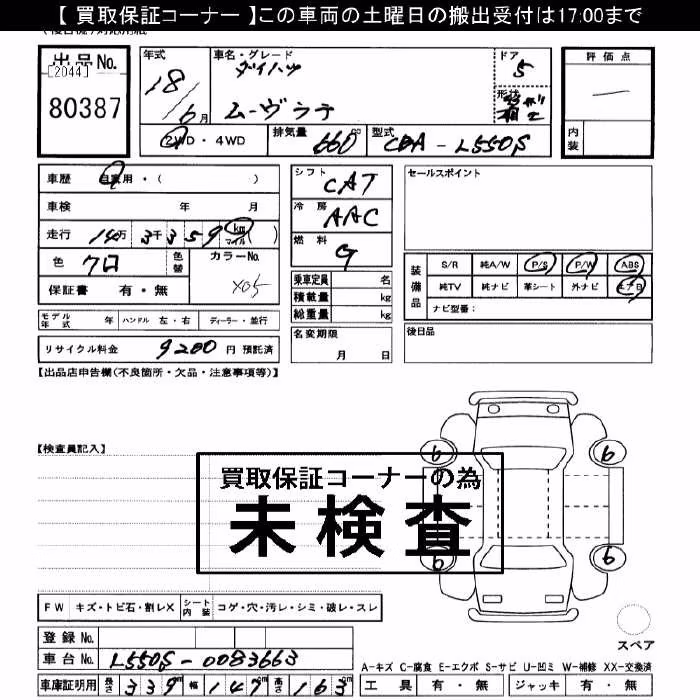 【 買取保証コーナー 】この車両の土曜日の搬出受付は17:00まで
出品No.
[2044]
80387
年式
18
6月
車名・グレード
ダイハツ
ムーヴラテ
ドア
5
形状
2WD・4WD
排気量 660 cc
型式 CBA - L550S
評価点
内装
車歴 自家用・( )
車検 年 月
走行 14万 3千 3 5 9 km マイル ( )
色 クロ
色替
カラーNo.
X05
保証書 有・無
シフト CAT
冷房 AAC
燃料 G
乗車定員 名
積載量 kg
総重量 kg
セールスポイント
装備品
S/R 純A/W P/S P/W ABS
純TV 純ナビ 革シート 外ナビ エアB
ナビ型番:
モデル年式 年 ハンドル 左・右 ディーラー・並行
リサイクル料金 9200 円 預託済
名変期限
月 日
後日品
【出品店申告欄(不良箇所・欠品・注意事項等)】
【検査員記入】
買取保証コーナーの為
未検査
6
6
6
6
FW キズ・トビ石・割レX シート内装 コゲ・穴・汚レ・シミ・破レ・スレ
登録No.
車台No. L550S-0083663
車庫証明用 長さ 339 cm 幅 147 cm 高さ 163 cm
スペア
A-キズ C-腐食 E-エクボ S-サビ U-凹ミ W-補修 XX-交換済
工具 有・無 ジャッキ 有・無